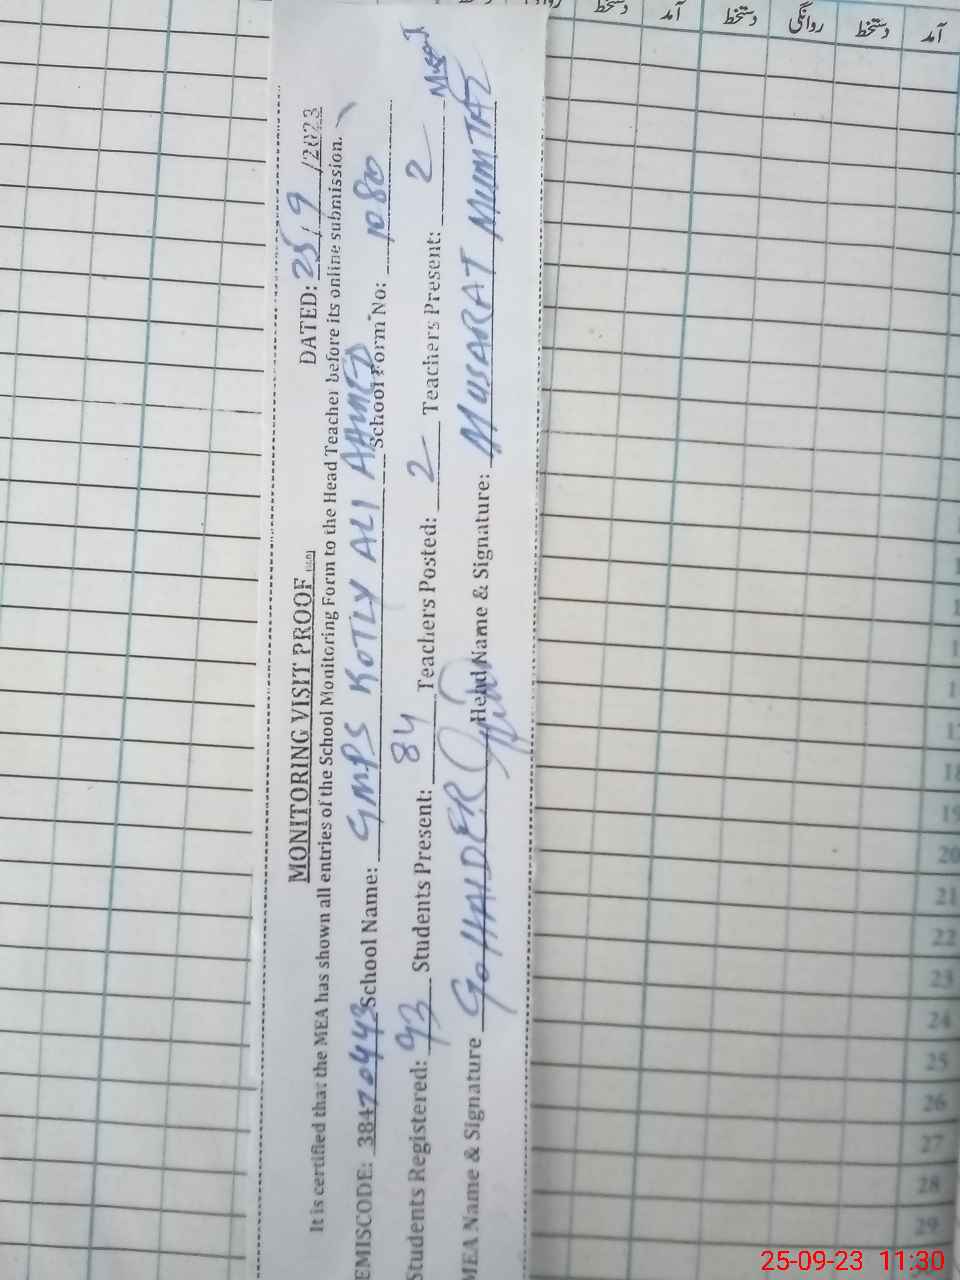 دستخط آمد دستخط روانگی دستخط آمد
MONITORING VISIT PROOF DATED: 25/9/2023
It is certified that the MEA has shown all entries of the School Monitoring Form to the Head Teacher before its online submission.
EMISCODE: 38470443 School Name: GMPS KOTLY ALI AHMED School Form No: 1080
Students Registered: 93 Students Present: 84 Teachers Posted: 2 Teachers Present: 2
MEA Name & Signature HAIDER Head Name & Signature: MUSARAT MUMTAZ
18
19
20
21
22
23
24
25
26
27
28
29
25-09-23 11:30